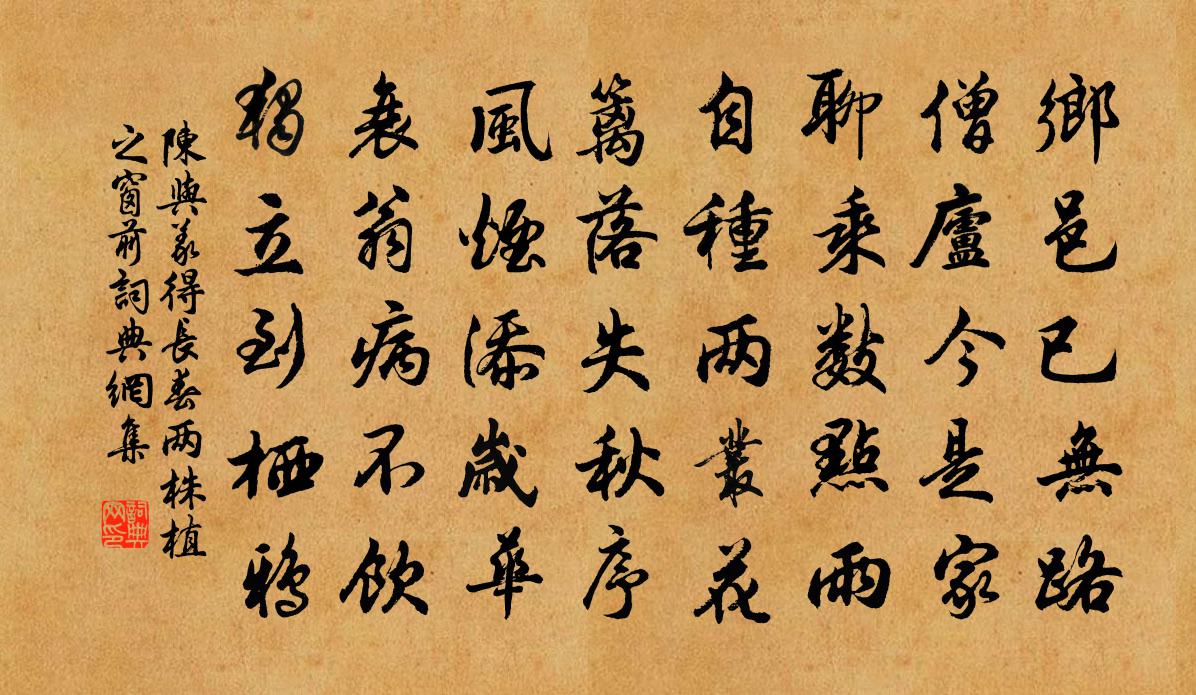 鄉邑已無路
僧廬今是家
聊乘數點雨
自種兩叢花
籬落失秋序
風煙添歲華
衰翁病不飲
獨立到栖鴉
陳與義得長春兩株植
之窗前詞典網集
詞典
网印